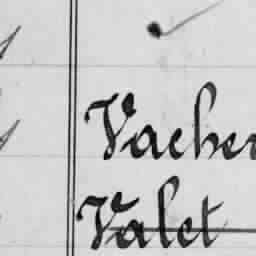 Vacher
Valet